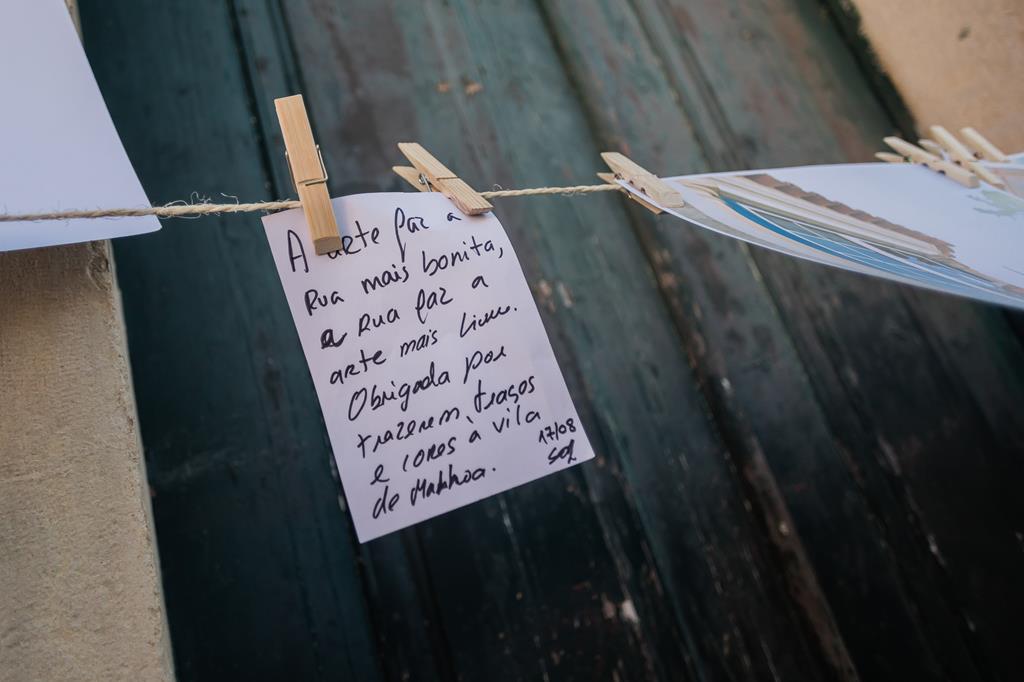 A arte faz a
Rua mais bonita,
a Rua faz a
arte mais livre.
Obrigada por
trazerem traços
e cores à vila
de
17/08
Sof